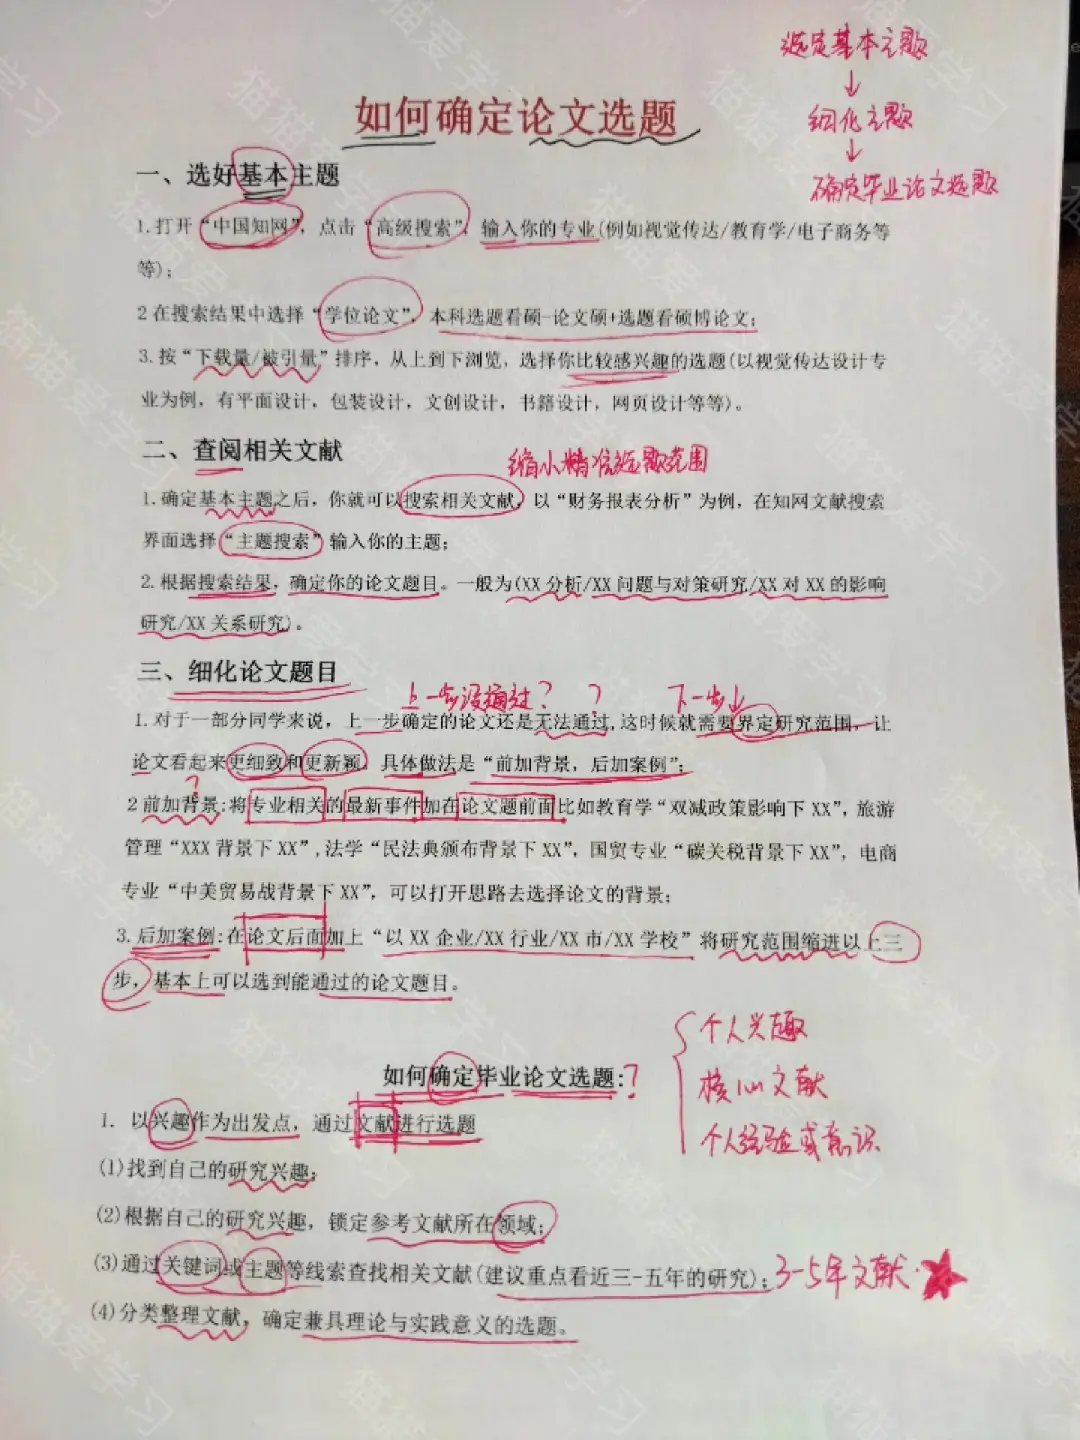 选定基本主题
↓
细化主题
↓
确定毕业论文选题
如何确定论文选题
一、选好基本主题
1.打开“中国知网”，点击“高级搜索”，输入你的专业(例如视觉传达/教育学/电子商务等
等);
2在搜索结果中选择“学位论文”，本科选题看硕-论文硕+选题看硕博论文;
3.按“下载量/被引量”排序，从上到下浏览，选择你比较感兴趣的选题(以视觉传达设计专
业为例，有平面设计，包装设计，文创设计，书籍设计，网页设计等等)。
二、查阅相关文献
缩小精准选题范围
1.确定基本主题之后，你就可以搜索相关文献，以“财务报表分析”为例，在知网文献搜索
界面选择“主题搜索”输入你的主题;
2.根据搜索结果，确定你的论文题目。一般为(XX分析/XX问题与对策研究/XX对XX的影响
研究/XX关系研究)。
三、细化论文题目
上一步没通过? ? 下一步↓
1.对于一部分同学来说，上一步确定的论文还是无法通过,这时候就需要界定研究范围，让
论文看起来更细致和更新颖，具体做法是“前加背景，后加案例”;
?
2前加背景:将专业相关的最新事件加在论文题前面比如教育学“双减政策影响下XX”，旅游
管理“XXX背景下XX”,法学“民法典颁布背景下XX”，国贸专业“碳关税背景下XX”，电商
专业“中美贸易战背景下XX”，可以打开思路去选择论文的背景;
3.后加案例:在论文后面加上“以XX企业/XX行业/XX市/XX学校”将研究范围缩进以上三
步，基本上可以选到能通过的论文题目。
个人兴趣
核心文献
个人经验或意识
如何确定毕业论文选题:?
1. 以兴趣作为出发点，通过文献进行选题
(1)找到自己的研究兴趣;
(2)根据自己的研究兴趣，锁定参考文献所在领域;
(3)通过关键词或主题等线索查找相关文献(建议重点看近三-五年的研究);3-5年文献.★
(4)分类整理文献，确定兼具理论与实践意义的选题。
猫猫爱学习